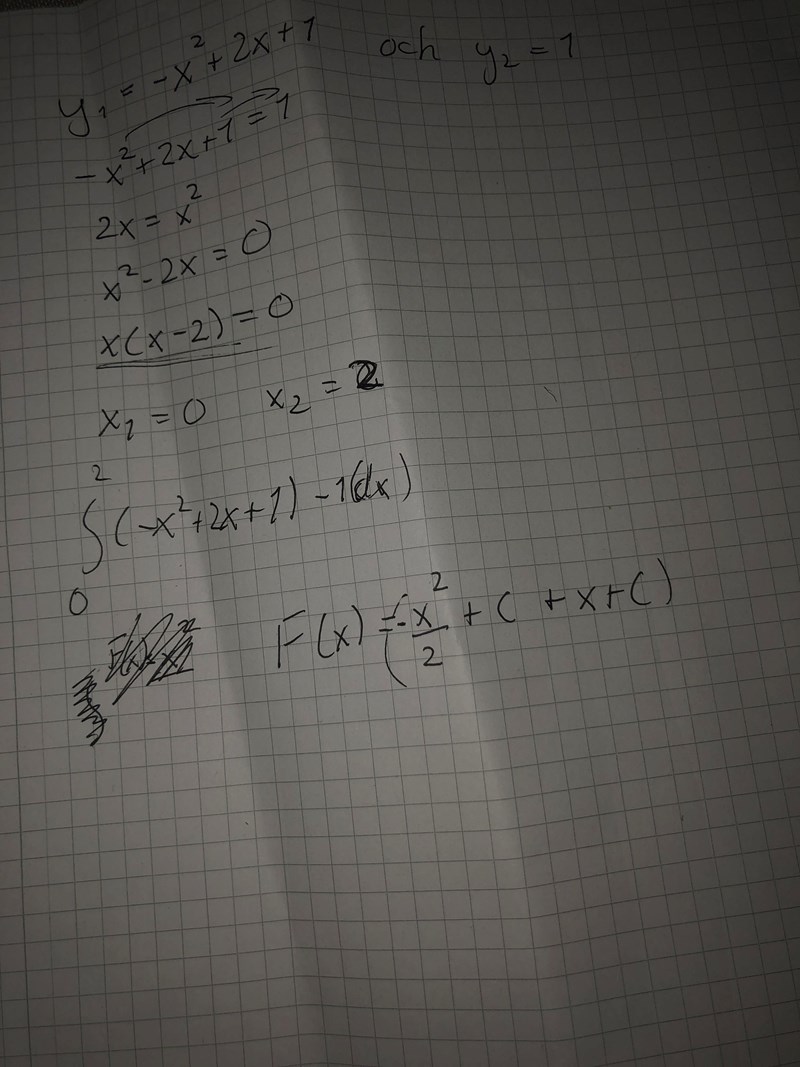 y₁ = -x² + 2x + 1 och y₂ = 1
-x² + 2x + 1 = 1
2x = x²
x² - 2x = 0
x(x - 2) = 0
x₁ = 0 x₂ = 2
2
∫ (-x² + 2x + 1) - 1(dx)
0
F(x) = (-x²/2 + C + x + C)